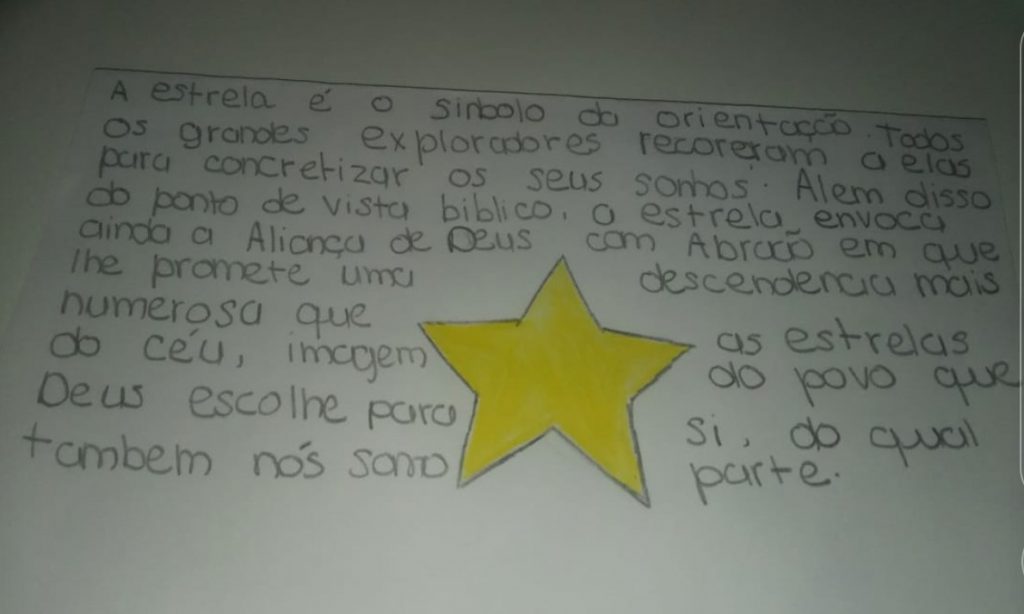 A estrela é o sinbolo da orientação. Todos
os grandes exploradores recoreram a elas
para concretizar os seus sonhos. Alem disso
do ponto de vista biblico, a estrela envoca
ainda a Aliança de Deus com Abraão em que
lhe promete uma descendencia mais
numerosa que as estrelas
do céu, imagem do povo que
Deus escolhe para si, do qual
tambem nós somo parte.